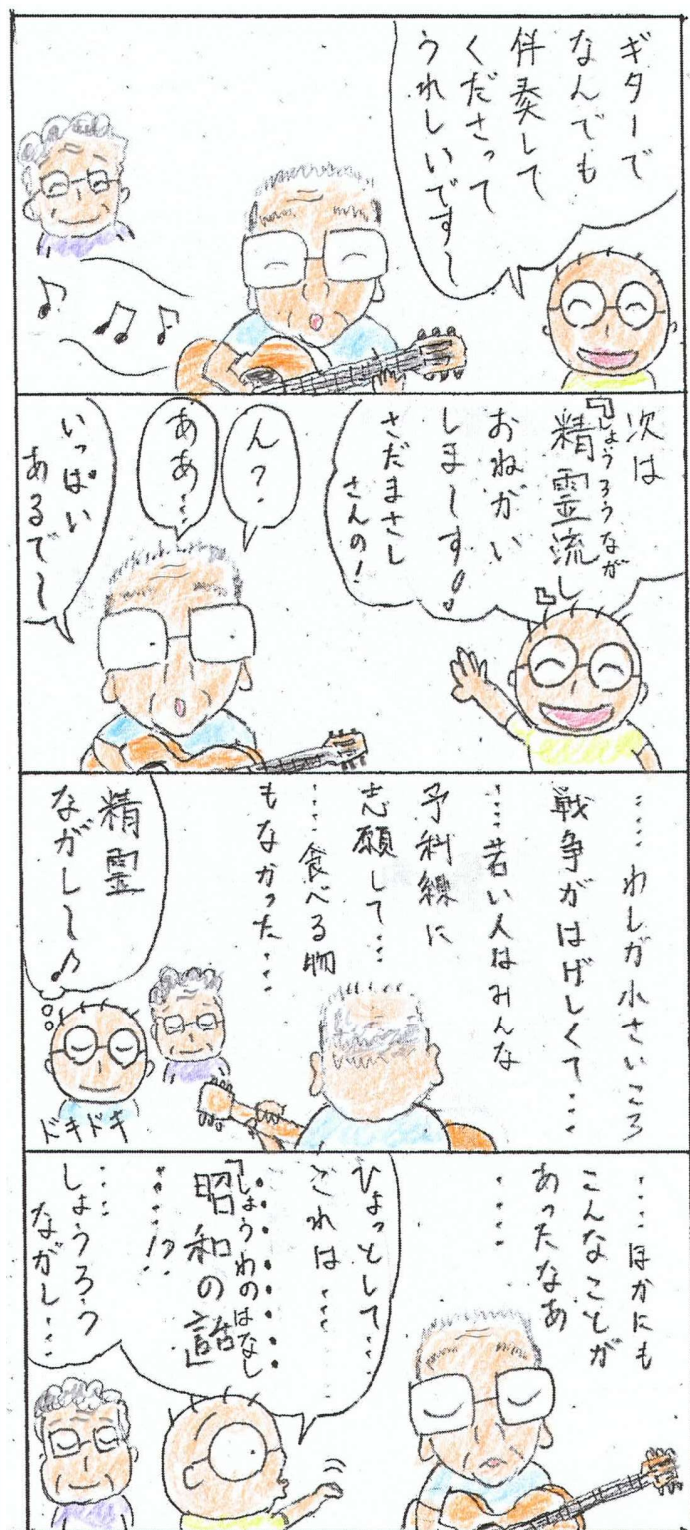 ギターで
なんでも
伴奏して
くださって
うれしいです〜
次は
『精霊流し』
しょうろうなが
おねがい
しまーす!
さだまさし
さんの!
ん?
ああ…
いっぱい
あるで〜
……わしが小さいころ
戦争がはげしくて…
……若い人はみんな
予科練に
志願して…
……食べる物
もなかった…
精霊
ながし〜♪
ドキドキ
……ほかにも
こんなことが
あったなあ
……
ひょっとして…
これは……
『昭和の話』
しょうわのはなし
……!?
……
しょうろう
ながし…